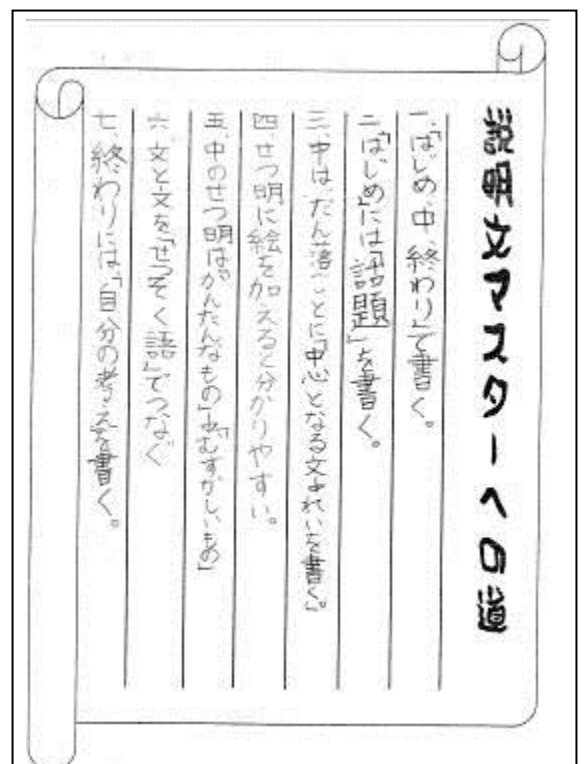 説明文マスターへの道
一、「はじめ、中、終わり」で書く。
二、「はじめ」には「話題」を書く。
三、中は、だん落ごとに「中心となる文」とれいを書く。
四、せつ明に絵を加えると分かりやすい。
五、中のせつ明は、「かんたんなもの」→「むずかしいもの」
六、文と文を「せつぞく語」でつなぐ
七、終わりには、「自分の考え」を書く。